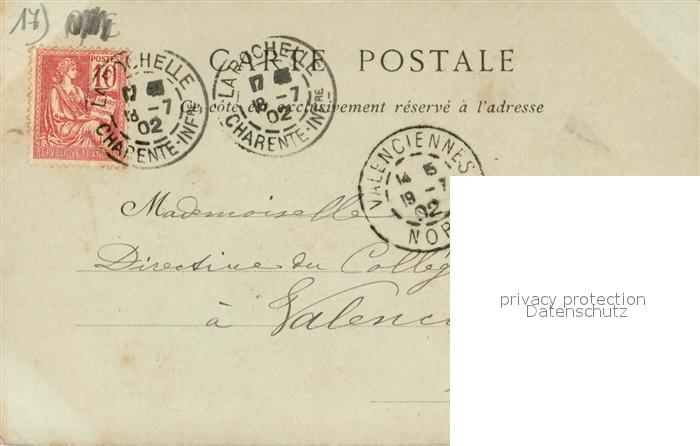 17)
CARTE POSTALE
Ce côté est exclusivement réservé à l'adresse
10
REPUBLIQUE FRANÇ
LA ROCHELLE
17
18 -7
02
CHARENTE-INFRE
LA ROCHELLE
17
18 -7
02
CHARENTE-INFRE
VALENCIENNES
14 15
19 -7
02
NOR
Mademoiselle
Directrice du Collèg
à Valenci
privacy protection
Datenschutz